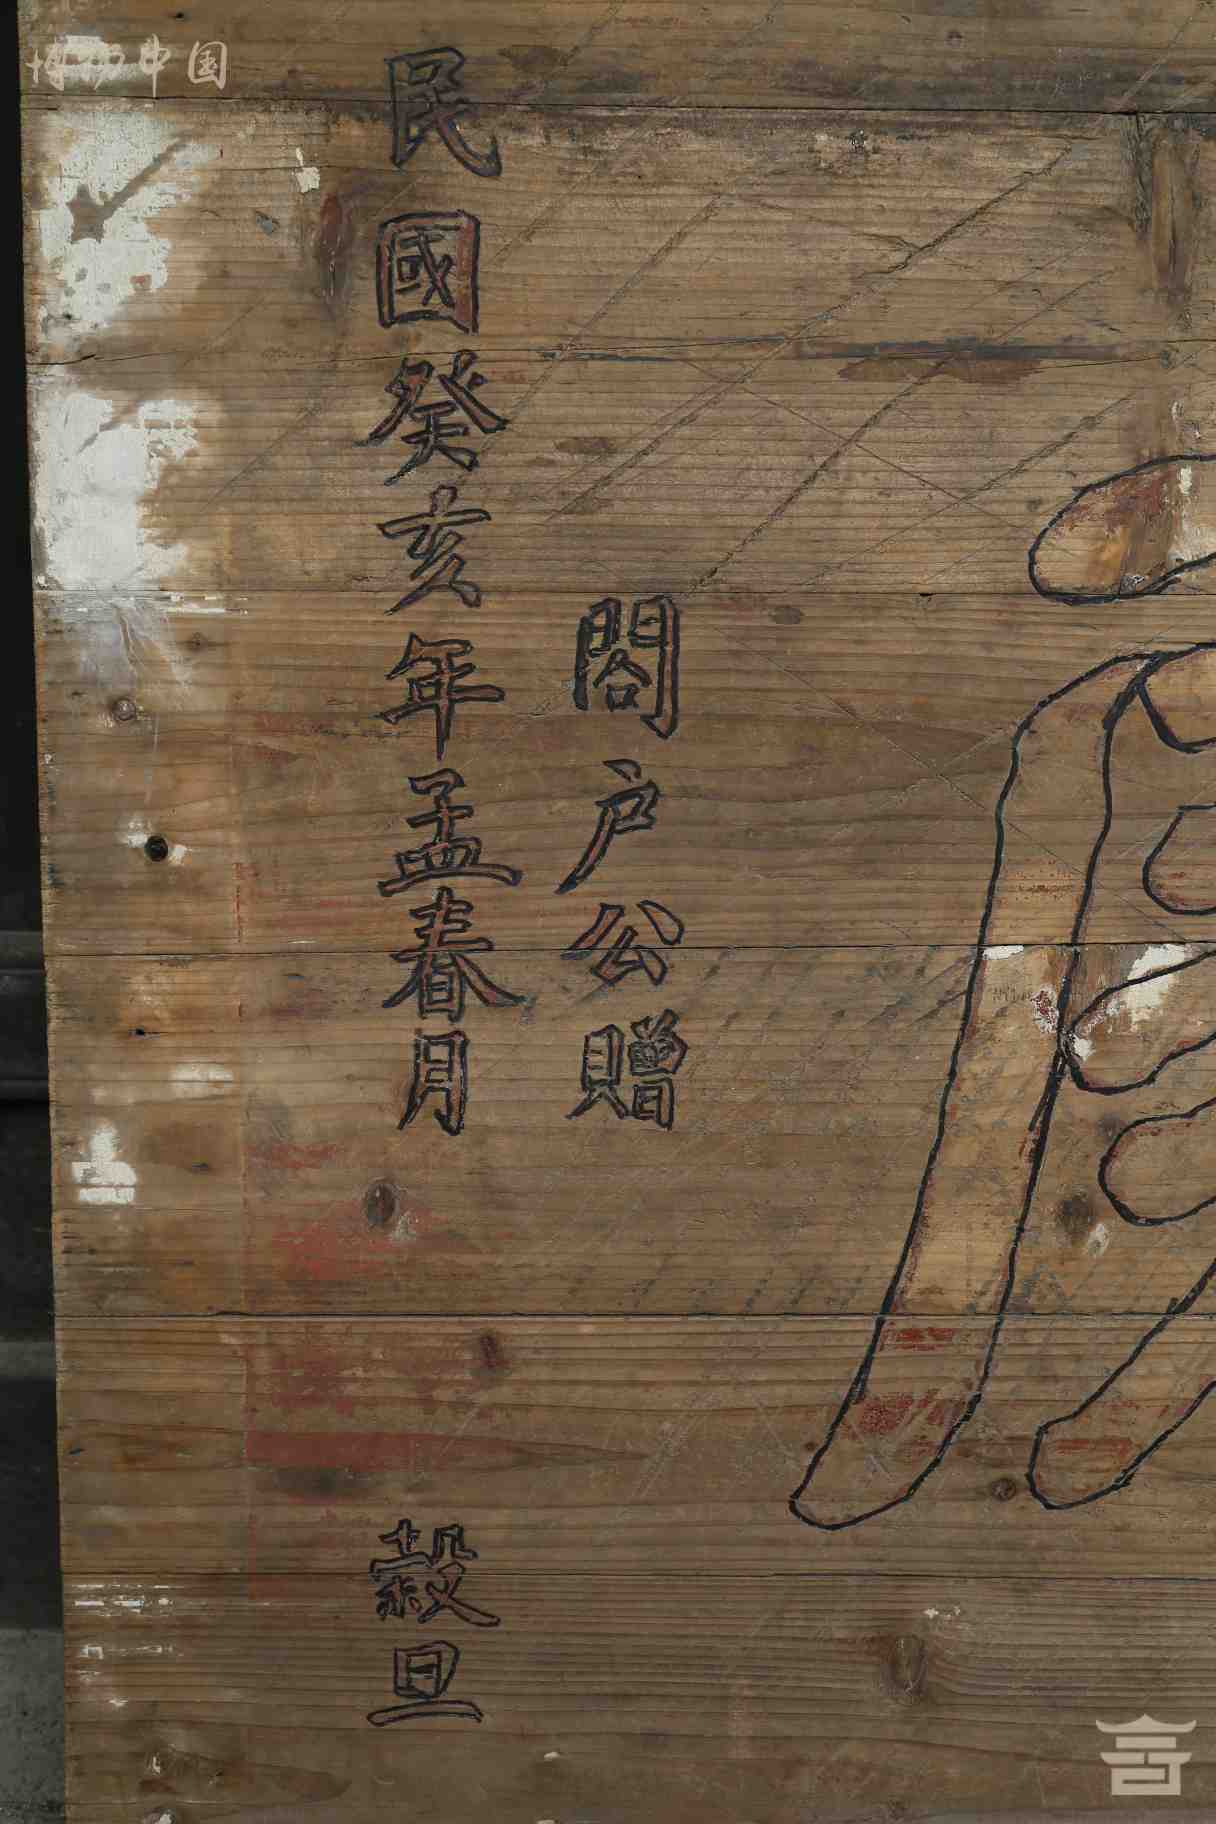 博物中国
閤户公贈
民國癸亥年孟春月 穀旦